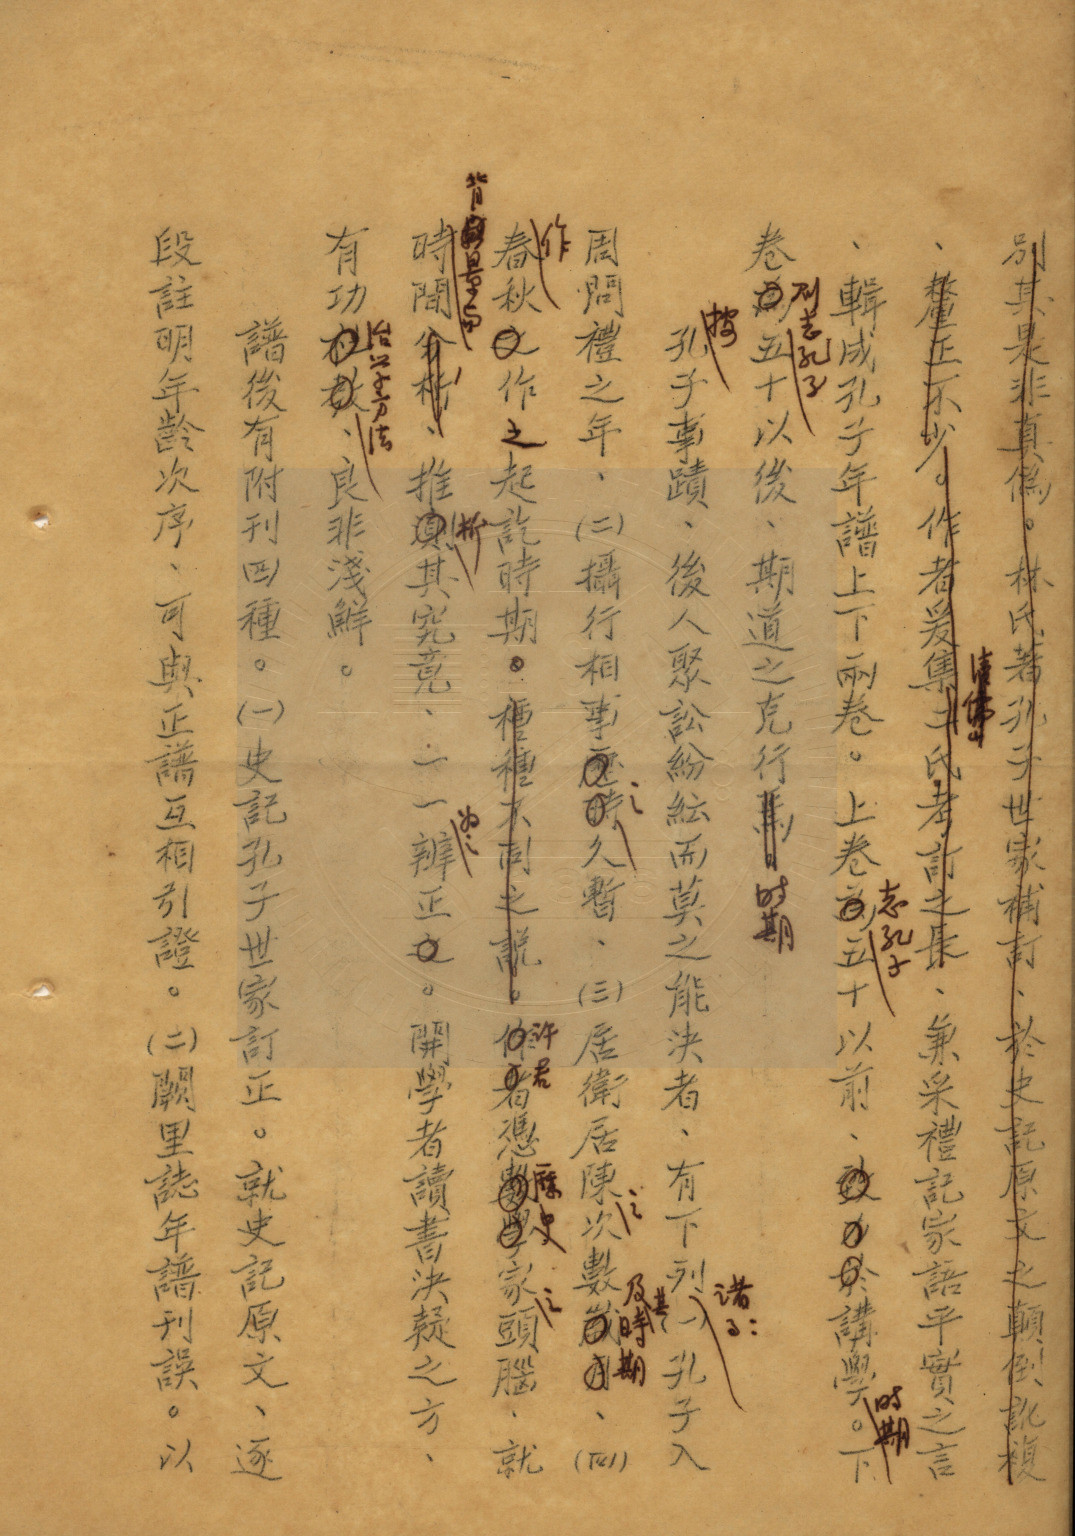 別其是非真偽。林氏著孔子世家補訂、於史記原文之顛倒訛複
、釐正不少。作者爰集二氏考訂之長、兼采禮記家語平實之言
清
、輯成孔子年譜上下兩卷。上卷為五十以前、致力於講學。下
志孔子
时期
卷為五十以後、期道之克行焉
列志孔子
时期
孔子事蹟、後人聚訟紛紜而莫之能決者、有下列(一)孔子入
按
諸
其
周問禮之年、(二)攝行相事歷時久暫、(三)居衛居陳次數歲月、(四)
之
之
及時期
春秋之作之起訖時期。種種不同之說。作者憑數學家頭腦、就
作
許君
歷史
之
時間分析、推測其究竟、一一辨正之。開學者讀書決疑之方、
背景与
析
為之
有功社教、良非淺鮮。
治学方法
譜後有附刊四種。(一)史記孔子世家訂正。就史記原文、逐
段註明年齡次序、可與正譜互相引證。(二)闕里誌年譜刊誤。以